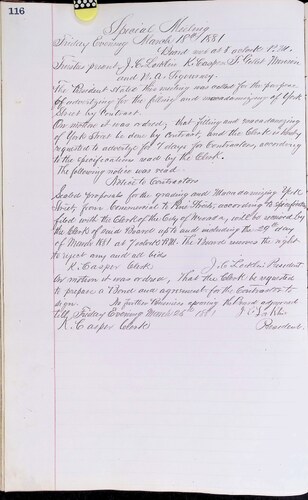 116
Special Meeting
Friday Evening March 18th 1881
Board met at 8 o'clock P.M.
Trustees present J. C. Loblin K. Casper
and
The President stated this meeting was called for the purpose
of advertizing for the filling and macadamizing of York
Street by Contract.
On motion it was ordered, that filling and macadamizing
of York Street be done by Contract, and the Clerk is hereby
requested to advertize for 7 days for Contractors, according
to the specifications made by the Clerk.
The following notice was read
Notice to Contractors
Sealed proposals for the grading and Macadamizing York
Street, from Commercial to Street, according to specifications
filed with the Clerk of the City of will be received by
the Clerk of said Board up to and including the 29th day
of March 1881 at 7 o'clock P.M. The Board reserves the right
to reject any and all bids
K. Casper Clerk J. C. Loblin President
On motion it was ordered, That the Clerk be requested
to prepare a Bond and agreement for the Contractor to
sign. No further Business appearing the Board adjourned
till Friday Evening March 25th 1881
K. Casper Clerk
President.